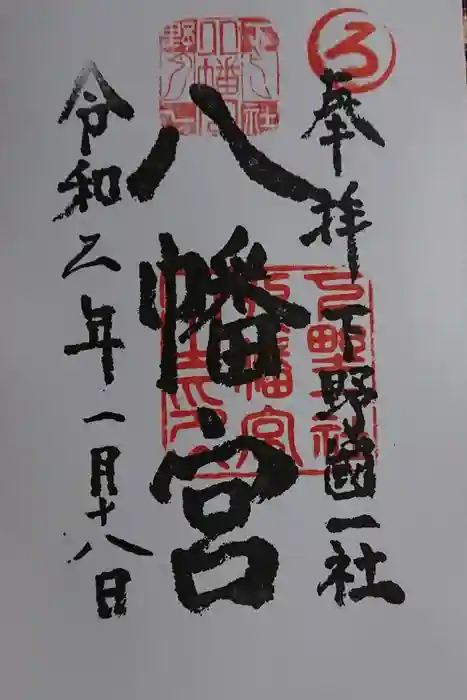 ろ
奉拝 下野國一社
八幡宮
令和二年一月十八日